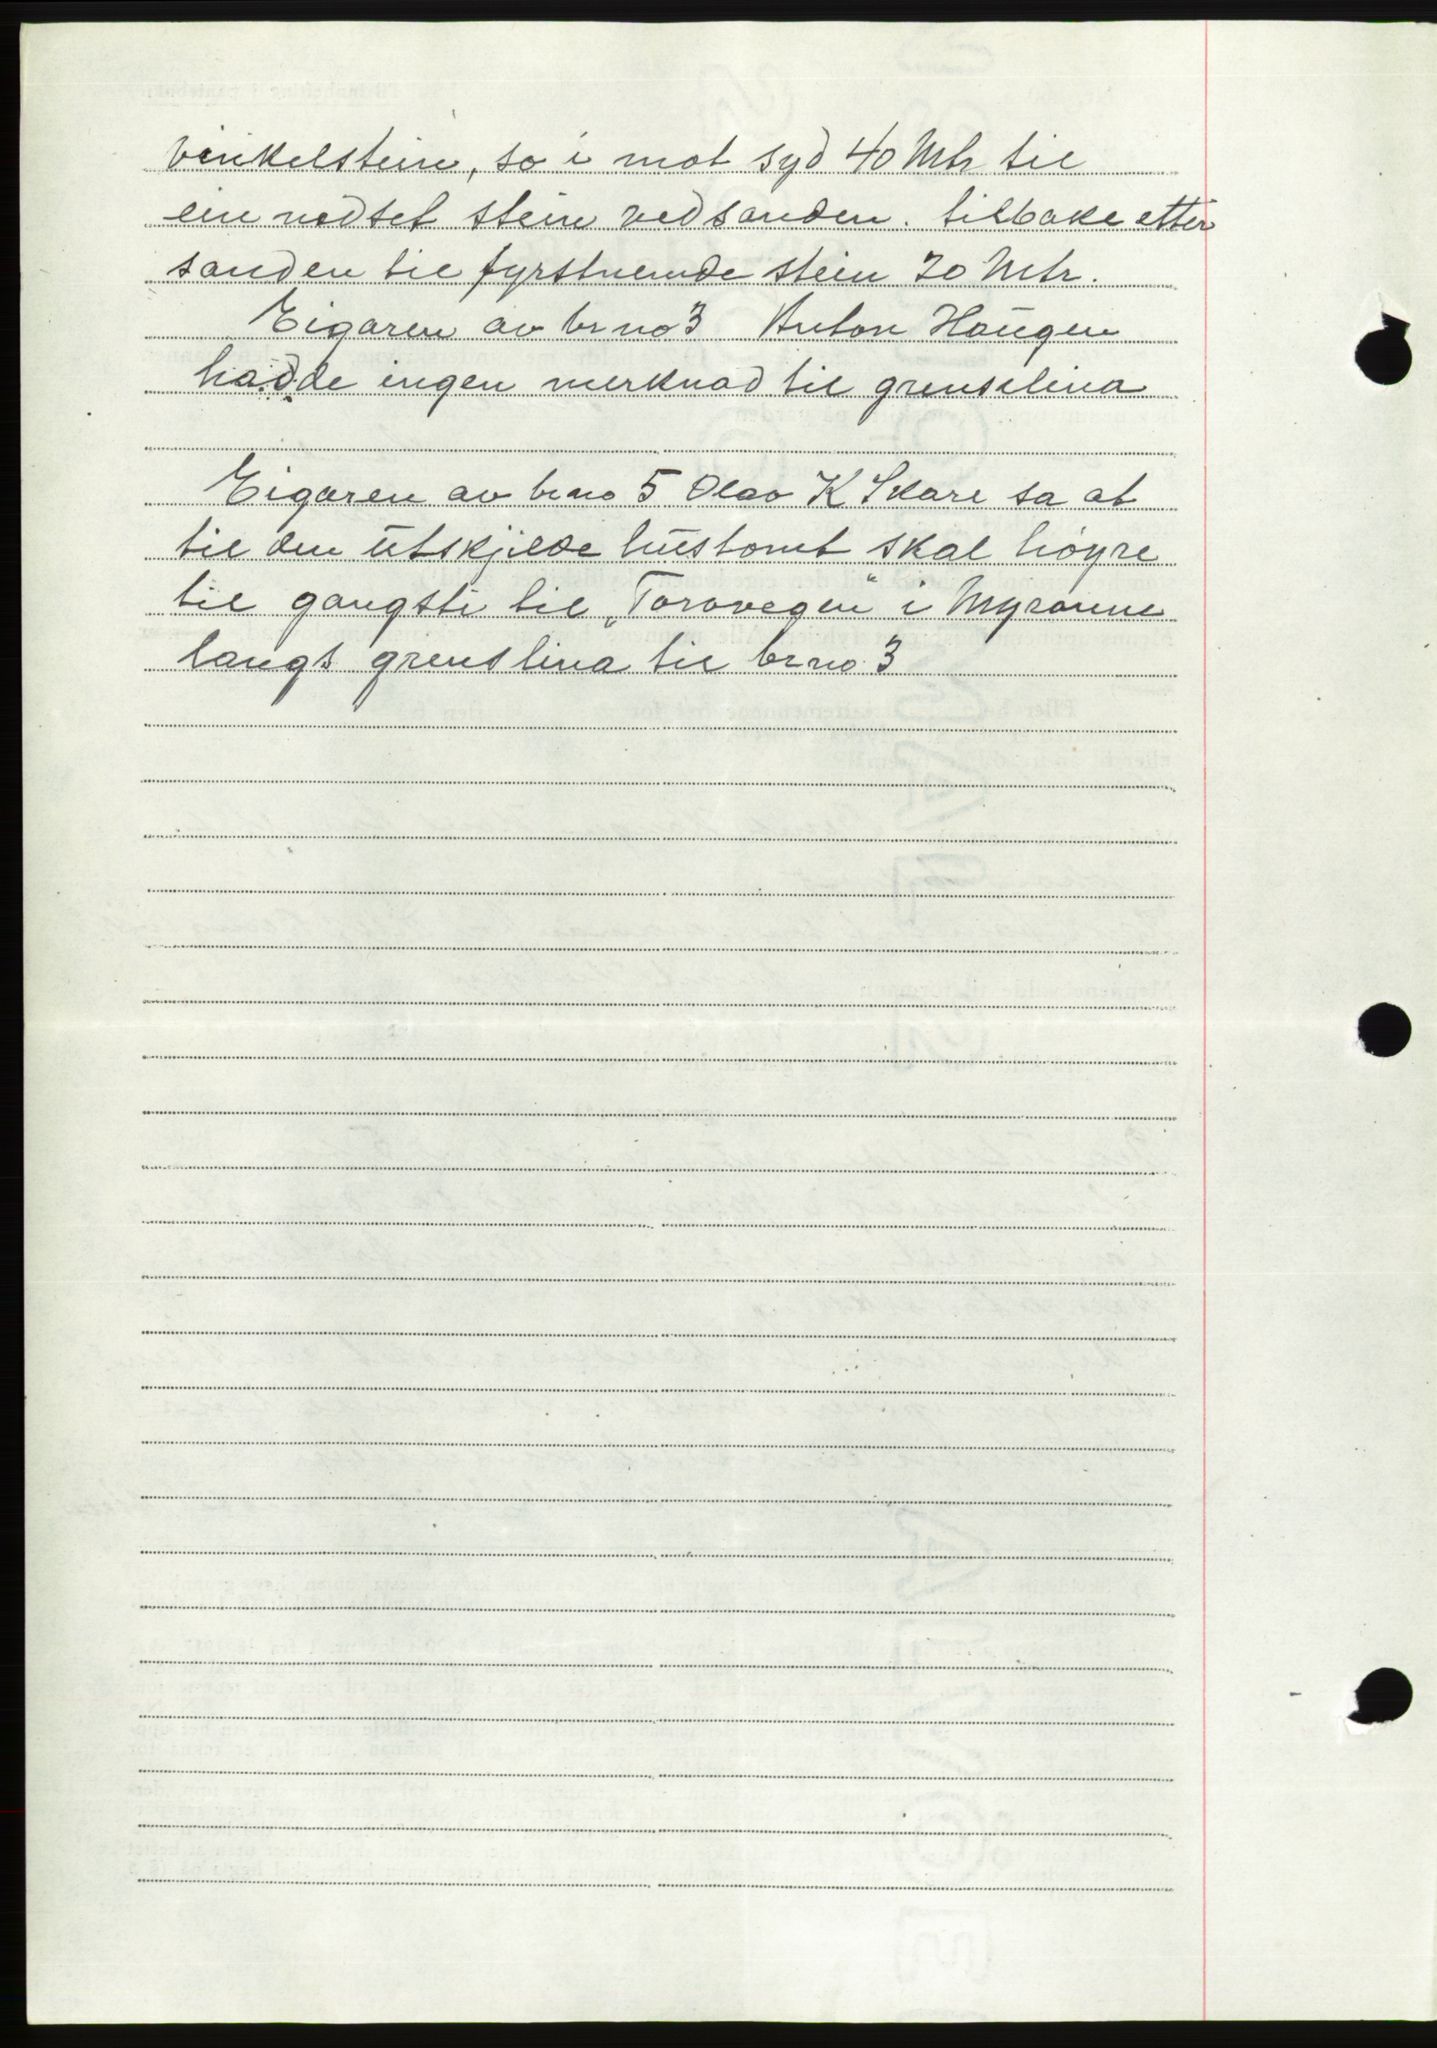 vinkelstein, so i mot syd 40 Mtr til
ein nedset stein ved sanden. tilbake etter
sanden til fyrstnemde stein 20 Mtr.
Eigaren av br no 3 Anton Haugen
hadde ingen merknad til grenselina
Eigaren av br no 5 Olav K Skare sa at
til den utskjilde hustomt skal høyre
til gangsti til „Toravegen" i Myranne
langs grenslina til br no 3